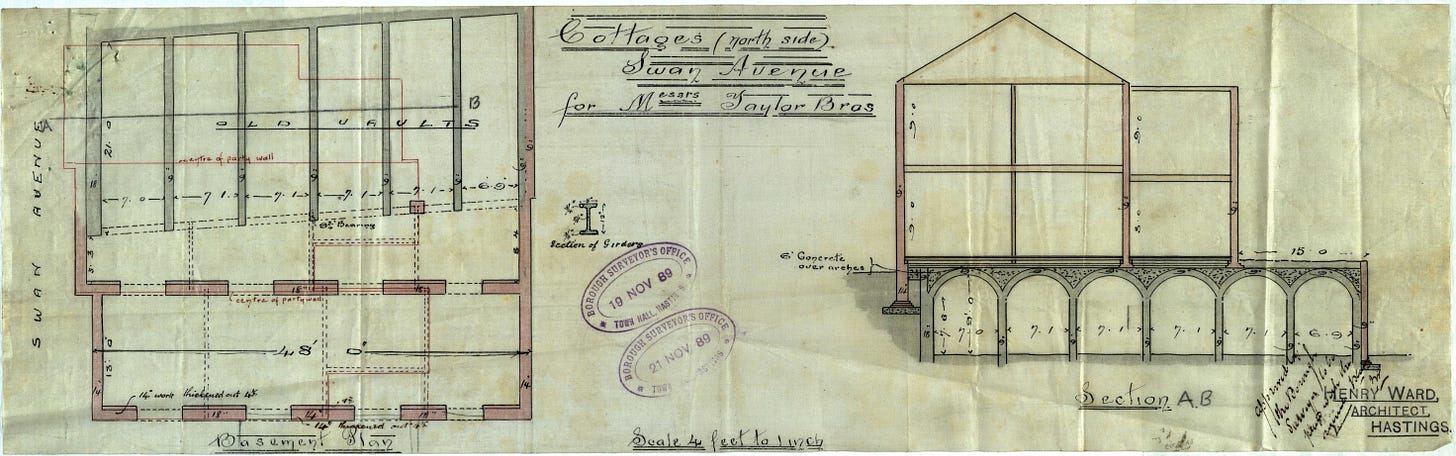 Cottages (north side)
Swan Avenue
for Messrs Taylor Bros
SWAN AVENUE
OLD VAULTS
B
centre of party wall
21.0
18"
7.0
7.1
7.1
7.1
7.1
6.9
9"
9"
9"
9"
9"
Bearing
centre of party wall
48' 0"
13.0
14"
14"
14" work thickened out 4½"
18"
14"
18"
Basement Plan
Section of Girders
BOROUGH SURVEYOR'S OFFICE
19 NOV 89
TOWN HALL, HASTINGS
BOROUGH SURVEYOR'S OFFICE
21 NOV 89
Scale 4 feet to 1 inch
9.0
9.0
9.0
9"
9"
9"
6" Concrete
over arches
15.0
7.0
7.1
7.1
7.1
7.1
6.9
Section A.B
HENRY WARD,
ARCHITECT,
HASTINGS.